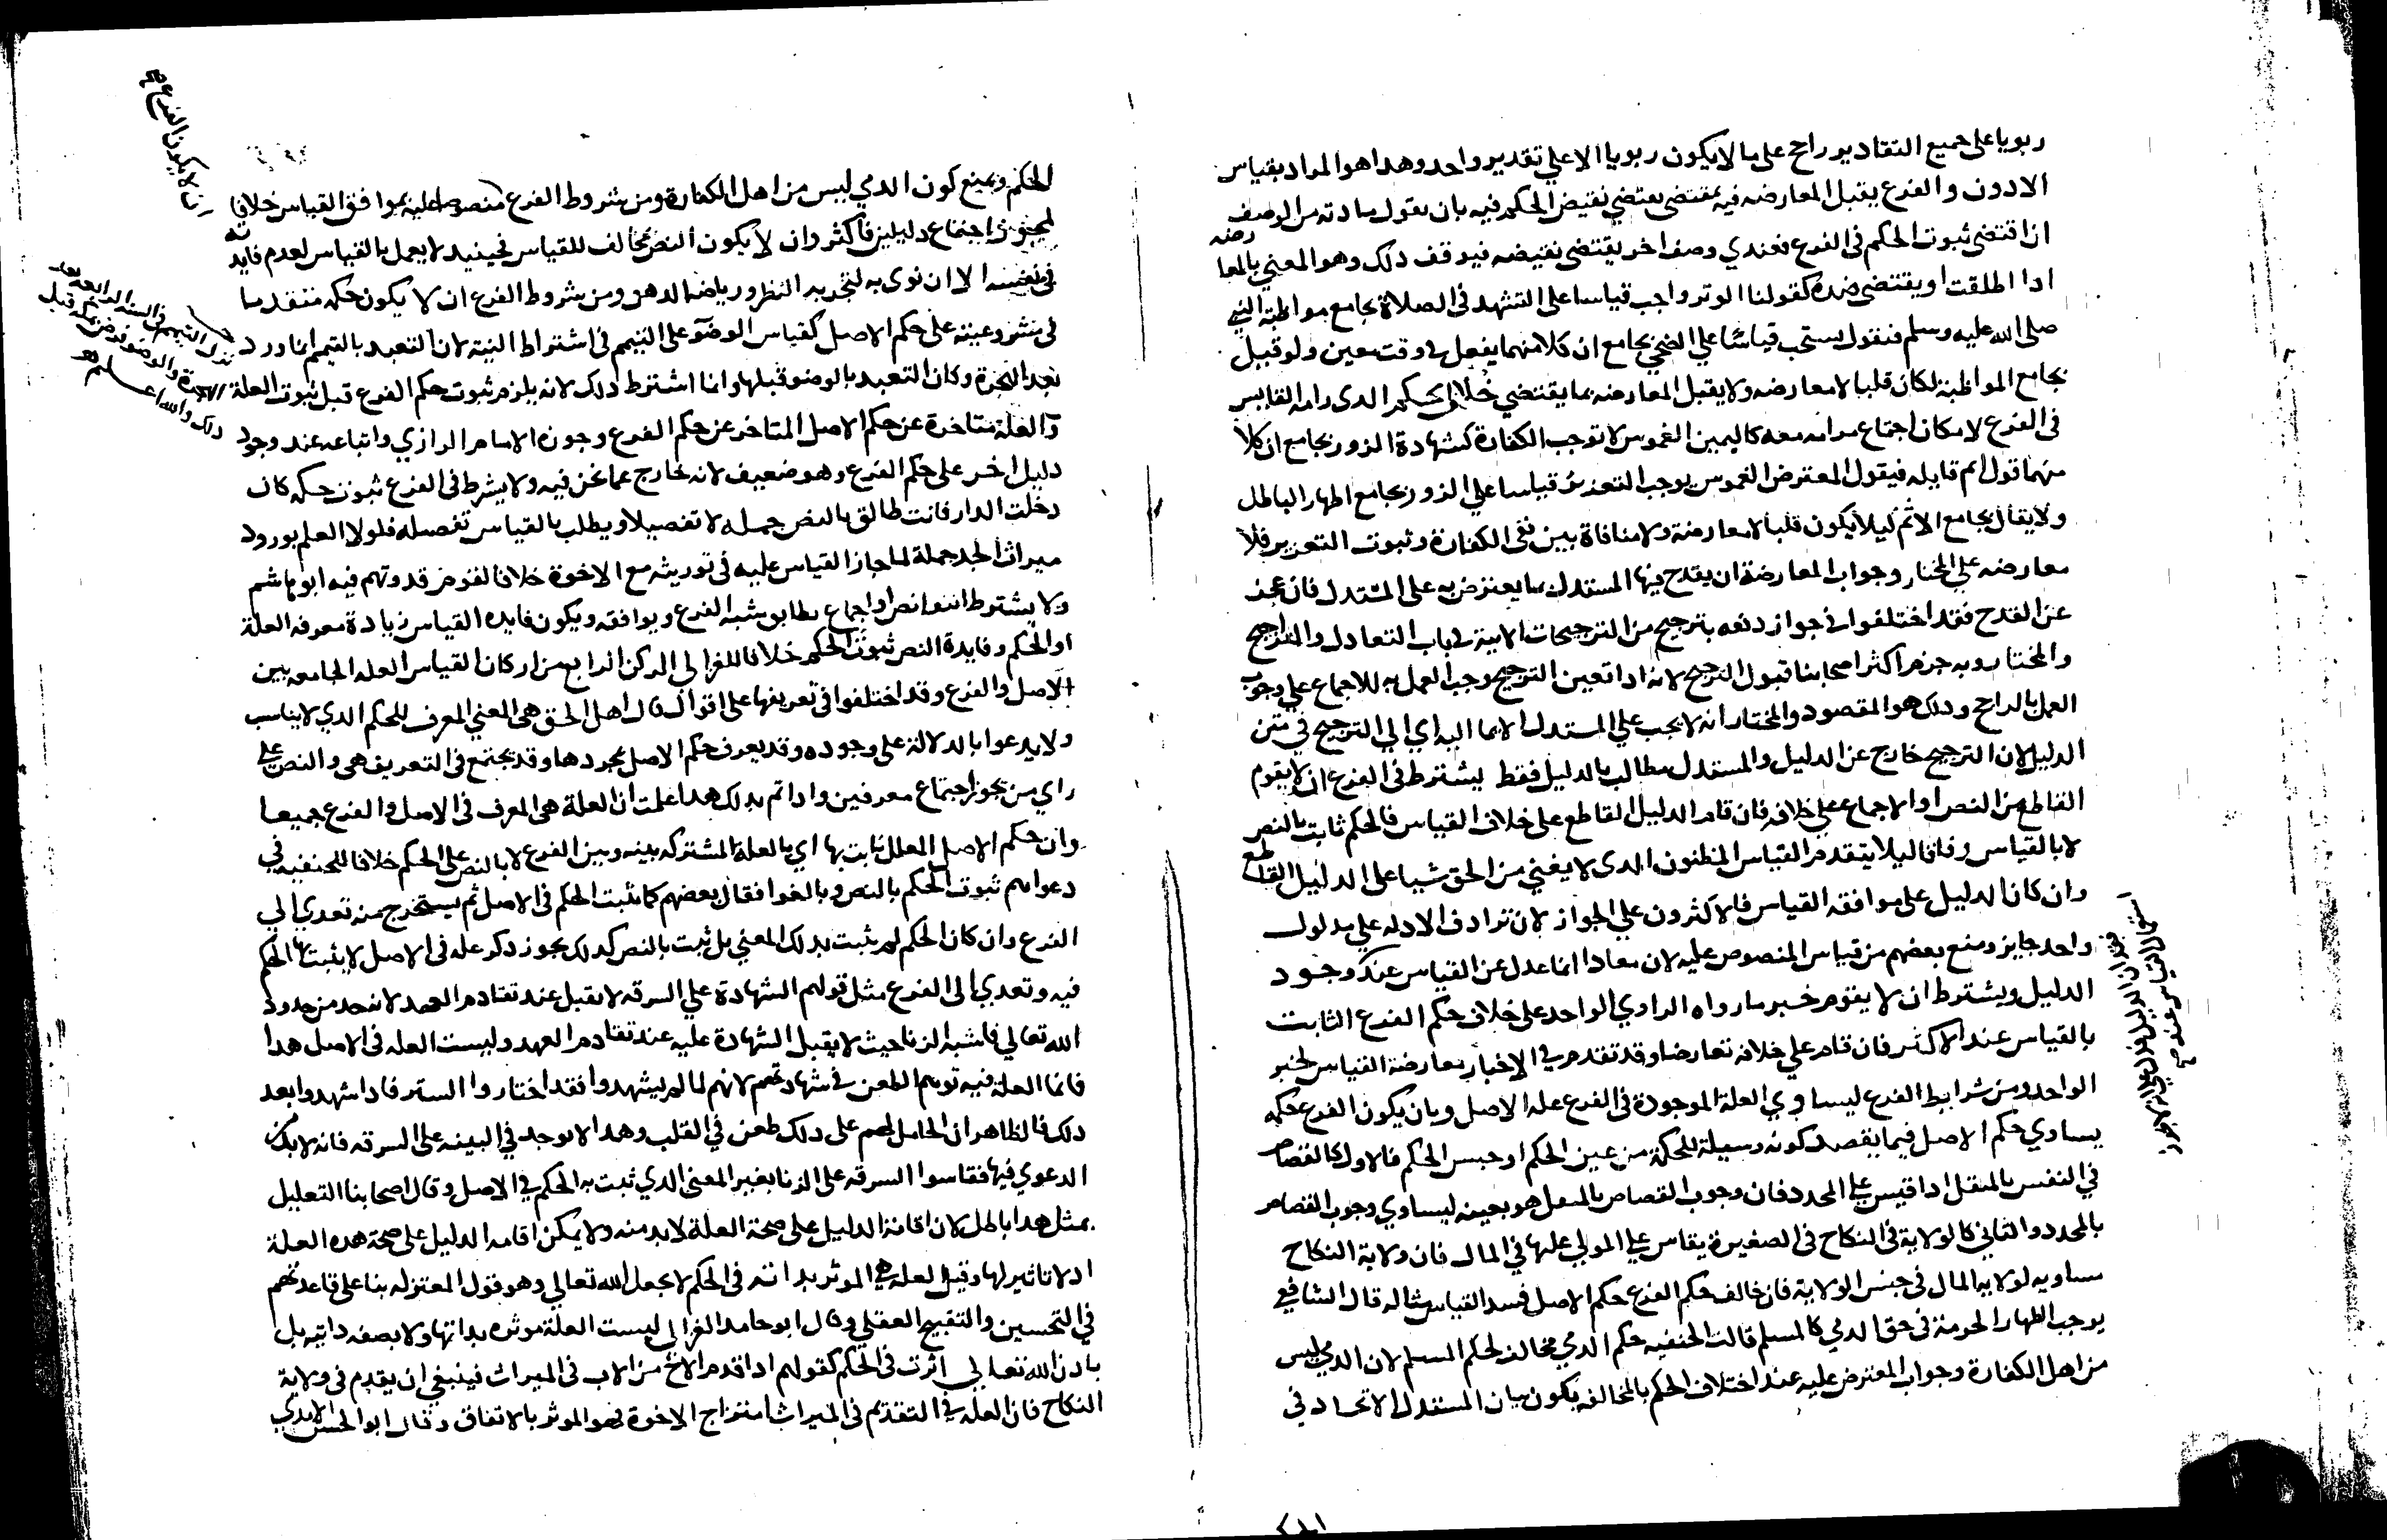 ربويا على جميع التقادير راجح على ما لا يكون ربويا الا على تقدير واحد وهذا هو المراد بقياس
الادون والفرع يقبل المعارضه فيه بمقتضى يقتضي نقيض الحكم فيه بان يقول ما ذكرته من الوصف
ان اقتضى ثبوت الحكم في الفرع فعندي وصف اخر يقتضى نقيضه فيوقف ذلك وهو المعني بالمعارضه
اذا اطلقت او يقتضى ضده كقولنا الوتر واجب قياسا على التشهد في الصلاة بجامع مواظبة النبي
صلى الله عليه وسلم فنقول يستحب قياسًا على الضحى بجامع ان كلا منهما يفعل في وقت معين ولو قيل
بجامع المواظبة لكان قلبا لا معارضه ولا يقبل المعارضه بما يقتضي خلاف الحكم الذي رامه القايس
في الفرع لامكان اجتماع مرامه معه كاليمين الغموس لا توجب الكفارة كشهادة الزور بجامع ان كلا
منهما قول اثم قايله فيقول المعترض الغموس يوجب التعزير قياسا على الزور بجامع اظهار الباطل
ولا يقال بجامع الاثم ليلا يكون قلبا لا معارضة ولا منافاة بين نفى الكفارة وثبوت التعزير فلا
معارضه على المختار وجواب المعارضة ان يقدح فيها المستدل بما يعترض به على المستدل فان عجز
عن القدح فقد اختلفوا في جواز دفعه بترجيح من الترجيحات الاتية في باب التعادل والتراجيح
والمختار وبه جزم اكثر اصحابنا قبول الترجيح لانه اذا تعين الترجيح وجب العمل به للاجماع على وجوب
العمل بالراجح وذلك هو المقصود والمختار انه لا يجب على المستدل الايما اليه اي الى الترجيح في متن
الدليل لان الترجيح خارج عن الدليل والمستدل مطالب بالدليل فقط يشترط في الفرع ان لا يقوم
القاطع من النص او الاجماع على خلافه فان قام الدليل القاطع على خلاف القياس فالحكم ثابت بالنص
لا بالقياس وفاقا ليلا يتقدم القياس المظنون الذي لا يغني من الحق شيا على الدليل القاطع
وان كان الدليل على موافقه القياس فالاكثرون على الجواز لان ترادف الادله على مدلول
واحد جايز ومنع بعضهم من قياس المنصوص عليه لان معاذا انما عدل عن القياس عند وجود
الدليل ويشترط ان لا يقوم خبر ما رواه الراوي الواحد على خلاف حكم الفرع الثابت
بالقياس عند الاكثر فان قام على خلافه تعارضا وقد تقدم في الاخبار معارضة القياس لخبر
الواحد ومن شرايط الفرع ليساوي العلة الموجودة في الفرع عله الاصل وبان يكون الفرع حكمه
يساوي حكم الاصل فيما يقصد كونه وسيلة للحكمة من عين الحكم او جنس الحكم فالاول كالقصاص
في النفس بالمثقل اذا قيس على المحدد فان وجوب القصاص بالمثقل هو بعينه ليساوي وجوب القصاص
بالمحدد والثاني كالولاية في النكاح في الصغيرة يقاس على المولي عليها في المال فان ولاية النكاح
مساويه لولاية المال في جنس الولاية فان خالف حكم الفرع حكم الاصل فسد القياس مثاله قال الشافعي
يوجب الظهار الحرمة في حق الذمي كالمسلم قالت الحنفيه حكم الذمي مخالف لحكم المسلم لان الذمي ليس
من اهل الكفارة وجواب المعترض عليه عند اختلاف الحكم بالمخالفه يكون ببيان المستدل الاتحاد في
الحكم ويمنع كون الذمي ليس من اهل الكفارة ومن شروط الفرع منصوصا عليه بموافق القياس خلافا
لمجوز اجتماع دليلين فاكثر وان لا يكون النص مخالف للقياس فحينيد لا يعمل بالقياس لعدم فايدته
في نفسه الا ان نوى به لتجربه النظر ورياضه الذهن ومن شروط الفرع ان لا يكون حكمه متقدما
في مشروعيته على حكم الاصل كقياس الوضو على التيمم في اشتراط النية لان التعبد بالتيمم انما ورد
بعد الهجرة وكان التعبد بالوضو قبلها وانما اشترط ذلك لانه يلزم ثبوت حكم الفرع قبل ثبوت العلة
والعلة متاخرة عن حكم الاصل المتاخر عن حكم الفرع وجوزه الامام الرازي واتباعه عند وجود
دليل اخر على حكم الفرع وهو ضعيف لانه خارج عما نحن فيه ولا يشرط في الفرع ثبوت حكمه كان
دخلت الدار فانت طالق بالنص جمله لا تفصيلا ويطلب بالقياس تفصيله فلولا العلم بورود
ميراث الجد جملة لما جاز القياس عليه في توريثه مع الاخوة خلافا لقوم قدوتهم فيه ابو هاشم
ولا يشترط انتفا نص او اجماع يطابق شبه الفرع ويوافقه ويكون فايده القياس زيادة معرفه العلة
او الحكم وفايدة النص ثبوت الحكم خلافا للغزالي الركن الرابع من اركان القياس العله الجامعه بين
الاصل والفرع وقد اختلفوا في تعريفها على اقوال قال اهل الحق هى المعني المعرف للحكم الذي لا يناسب
ولا يدعوا بالدلالة على وجوده وقد يعرف حكم الاصل بمجردها وقد يجتمع في التعريف هى والنص على
راي من يجوز اجتماع معرفين واذا تم بذلك هذا علمت ان العلة هى المعرف في الاصل والفرع جميعا
وان حكم الاصل المعلل ثابت بها اي بالعلة المشتركه بينه وبين الفرع لا بالنص على الحكم خلافا للحنفيه في
دعواهم ثبوت الحكم بالنص وبالغوا فقال بعضهم كما يثبت الحكم في الاصل ثم يستخرج منه تعدي الى
الفرع وان كان الحكم لم يثبت بذلك المعني بل ثبت بالنص كذلك يجوز ذكر عله في الاصل لا يثبت بها الحكم
فيه وتعدي الى الفرع مثل قولهم الشهادة على السرقه لا تقبل عند تقادم العهد لانه حد من حدود
الله تعالى فاشبه الزنا حيث لا يقبل الشهادة عليه عند تقادم العهد وليست العله في الاصل هذا
فانما العلة فيه توهم الطعن في شهادتهم لانهم لما لم يشهدوا فقد اختاروا الستر فاذا شهدوا بعد
ذلك فالظاهر ان الحامل لهم على ذلك طعن في القلب وهذا لا يوجد في البينه على السرقه فانه لا يمكن
الدعوي فيها فقاسوا السرقه على الزنا بغير المعنى الذي ثبت به الحكم في الاصل وقال اصحابنا التعليل
بمثل هذا باطل لان اقامة الدليل على صحة العلة لا بد منه ولا يمكن اقامه الدليل على صحة هذه العلة
اذ لا تاثير لها وقيل العلة هي الموثر بذاته في الحكم لا بجعل الله تعالى وهو قول المعتزله بنا على قاعدتهم
في التحسين والتقبيح العقلي وقال ابو حامد الغزالي ليست العلة موثره بذاتها ولا بصفه ذاتيه بل
باذن الله تعالى اثرت في الحكم كقولهم اذا قدم الاخ من الاب في الميراث فينبغي ان يقدم في ولاية
النكاح فان العله في التقديم في الميراث امتزاج الاخوة فهو الموثر بالاتفاق وقال ابو الحسن الامدي
ان لا يكون الفرع
نزل التيمم في السنه الرابعه بعد
الهجرة والوضو فرض بمكه قبل
ذلك والله اعلم
الحكم